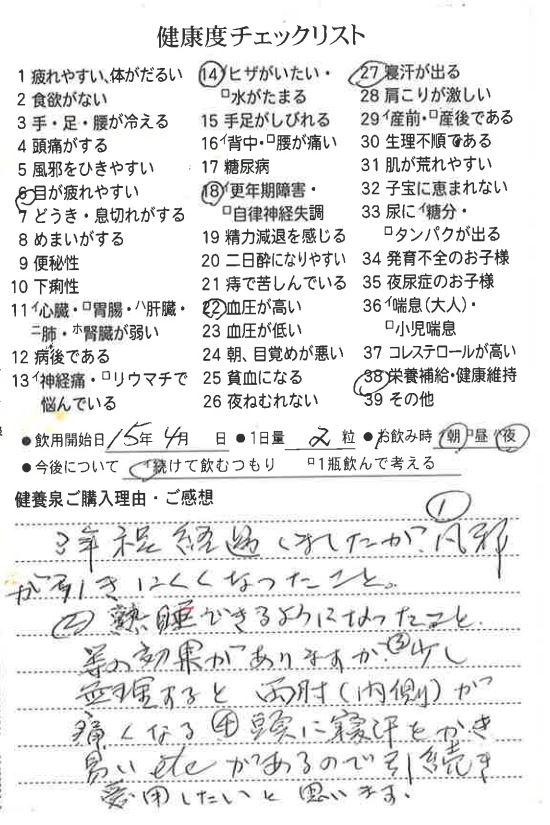 健康度チェックリスト
1 疲れやすい、体がだるい
2 食欲がない
3 手・足・腰が冷える
4 頭痛がする
5 風邪をひきやすい
6 目が疲れやすい
7 どうき・息切れがする
8 めまいがする
9 便秘性
10 下痢性
11 イ心臓・ロ胃腸・ハ肝臓・
ニ肺・ホ腎臓が弱い
12 病後である
13 イ神経痛・ロリウマチで
悩んでいる
14 イヒザがいたい・
ロ水がたまる
15 手足がしびれる
16 イ背中・ロ腰が痛い
17 糖尿病
18 イ更年期障害・
ロ自律神経失調
19 精力減退を感じる
20 二日酔になりやすい
21 痔で苦しんでいる
22 血圧が高い
23 血圧が低い
24 朝、目覚めが悪い
25 貧血になる
26 夜ねむれない
27 寝汗が出る
28 肩こりが激しい
29 イ産前・ロ産後である
30 生理不順である
31 肌が荒れやすい
32 子宝に恵まれない
33 尿にイ糖分・
ロタンパクが出る
34 発育不全のお子様
35 夜尿症のお子様
36 イ喘息(大人)・
ロ小児喘息
37 コレステロールが高い
38 栄養補給・健康維持
39 その他
●飲用開始日 15年 4月 日 ●1日量 2 粒 ●お飲み時 イ朝 ロ昼 ハ夜
●今後について イ続けて飲むつもり ロ1瓶飲んで考える
健養泉ご購入理由・ご感想
3年程経過しましたが、①風邪
が引きにくくなったこと。
②熟睡できるようになったこと、
等の効果がありますが、③少し
無理すると両肘(内側)が
痛くなる④頭に寝汗をかき
易いetcがあるので引続き
愛用したいと思います。